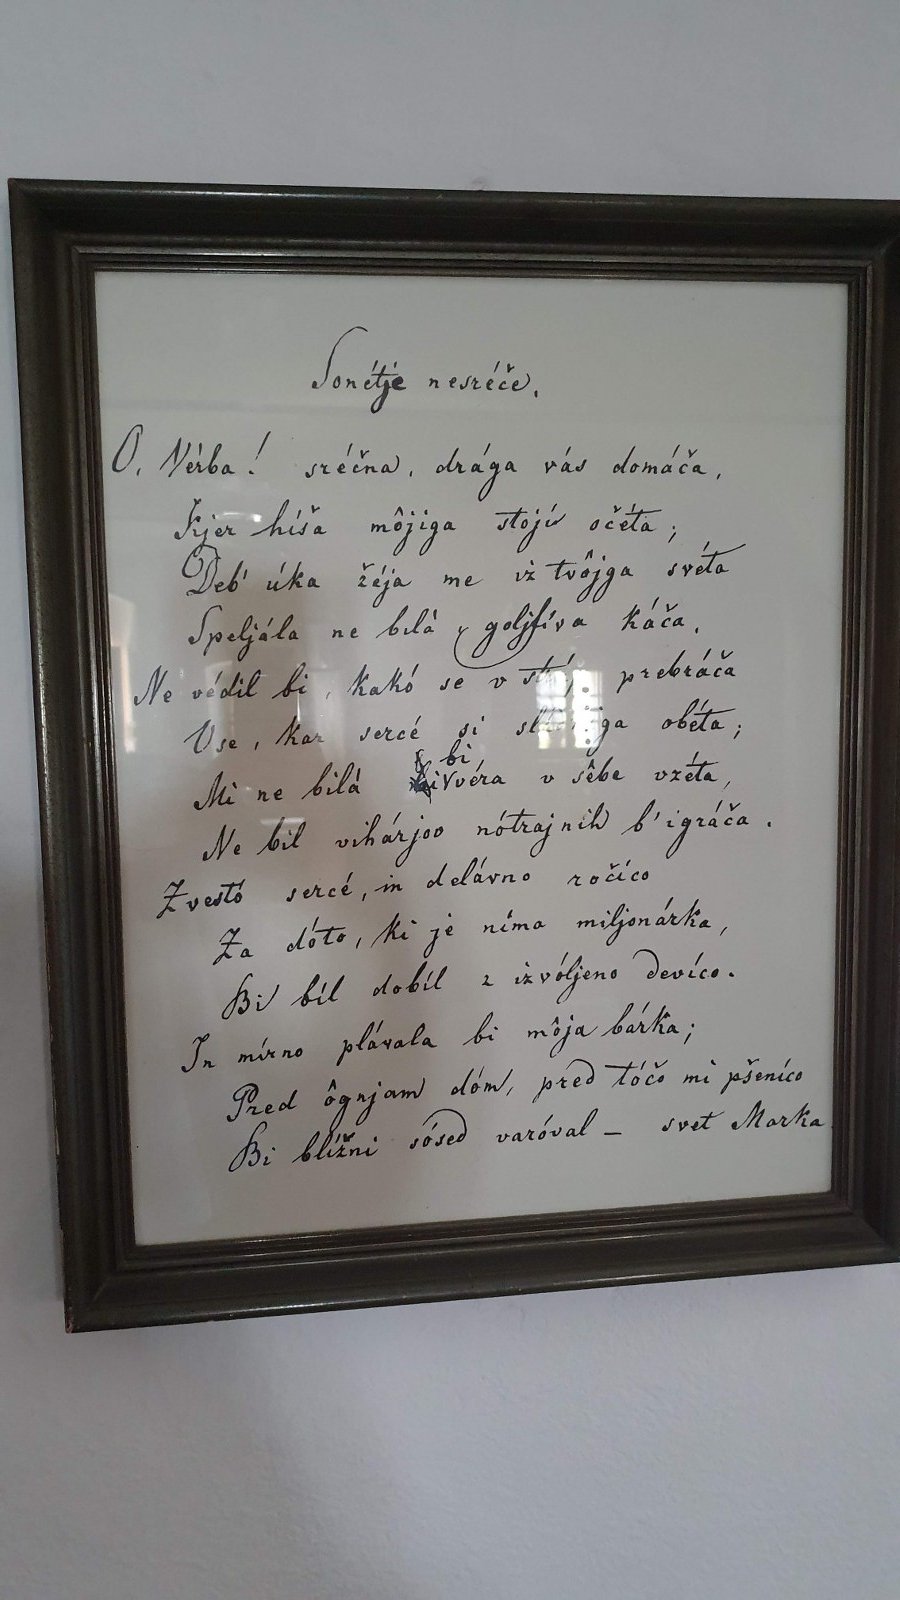 Sonétje nesréče.
O, Vérba! sréčna, drága vás domáča,
Kjer híša môjiga stojí očéta;
Deb' úka žéja me iz tvôjga svéta
Speljála ne bilá, goljfíva káča,
Ne védil bi, kakó se v prebráča
Vse, kar sercé si obéta;
Mi ne bilá bi véra v sêbe vzéta,
Ne bil vihárjov nótrajnih b' igráča.
Zvestó sercé, in delávno ročíco
Za dóto, ki je níma miljonárka,
Bi bíl dobíl z izvóljeno devíco.
In mírno plávala bi môja bárka;
Pred ôgnjam dóm, pred tóčo mi pšeníco
Bi blížni sósed varóval – svet Marka